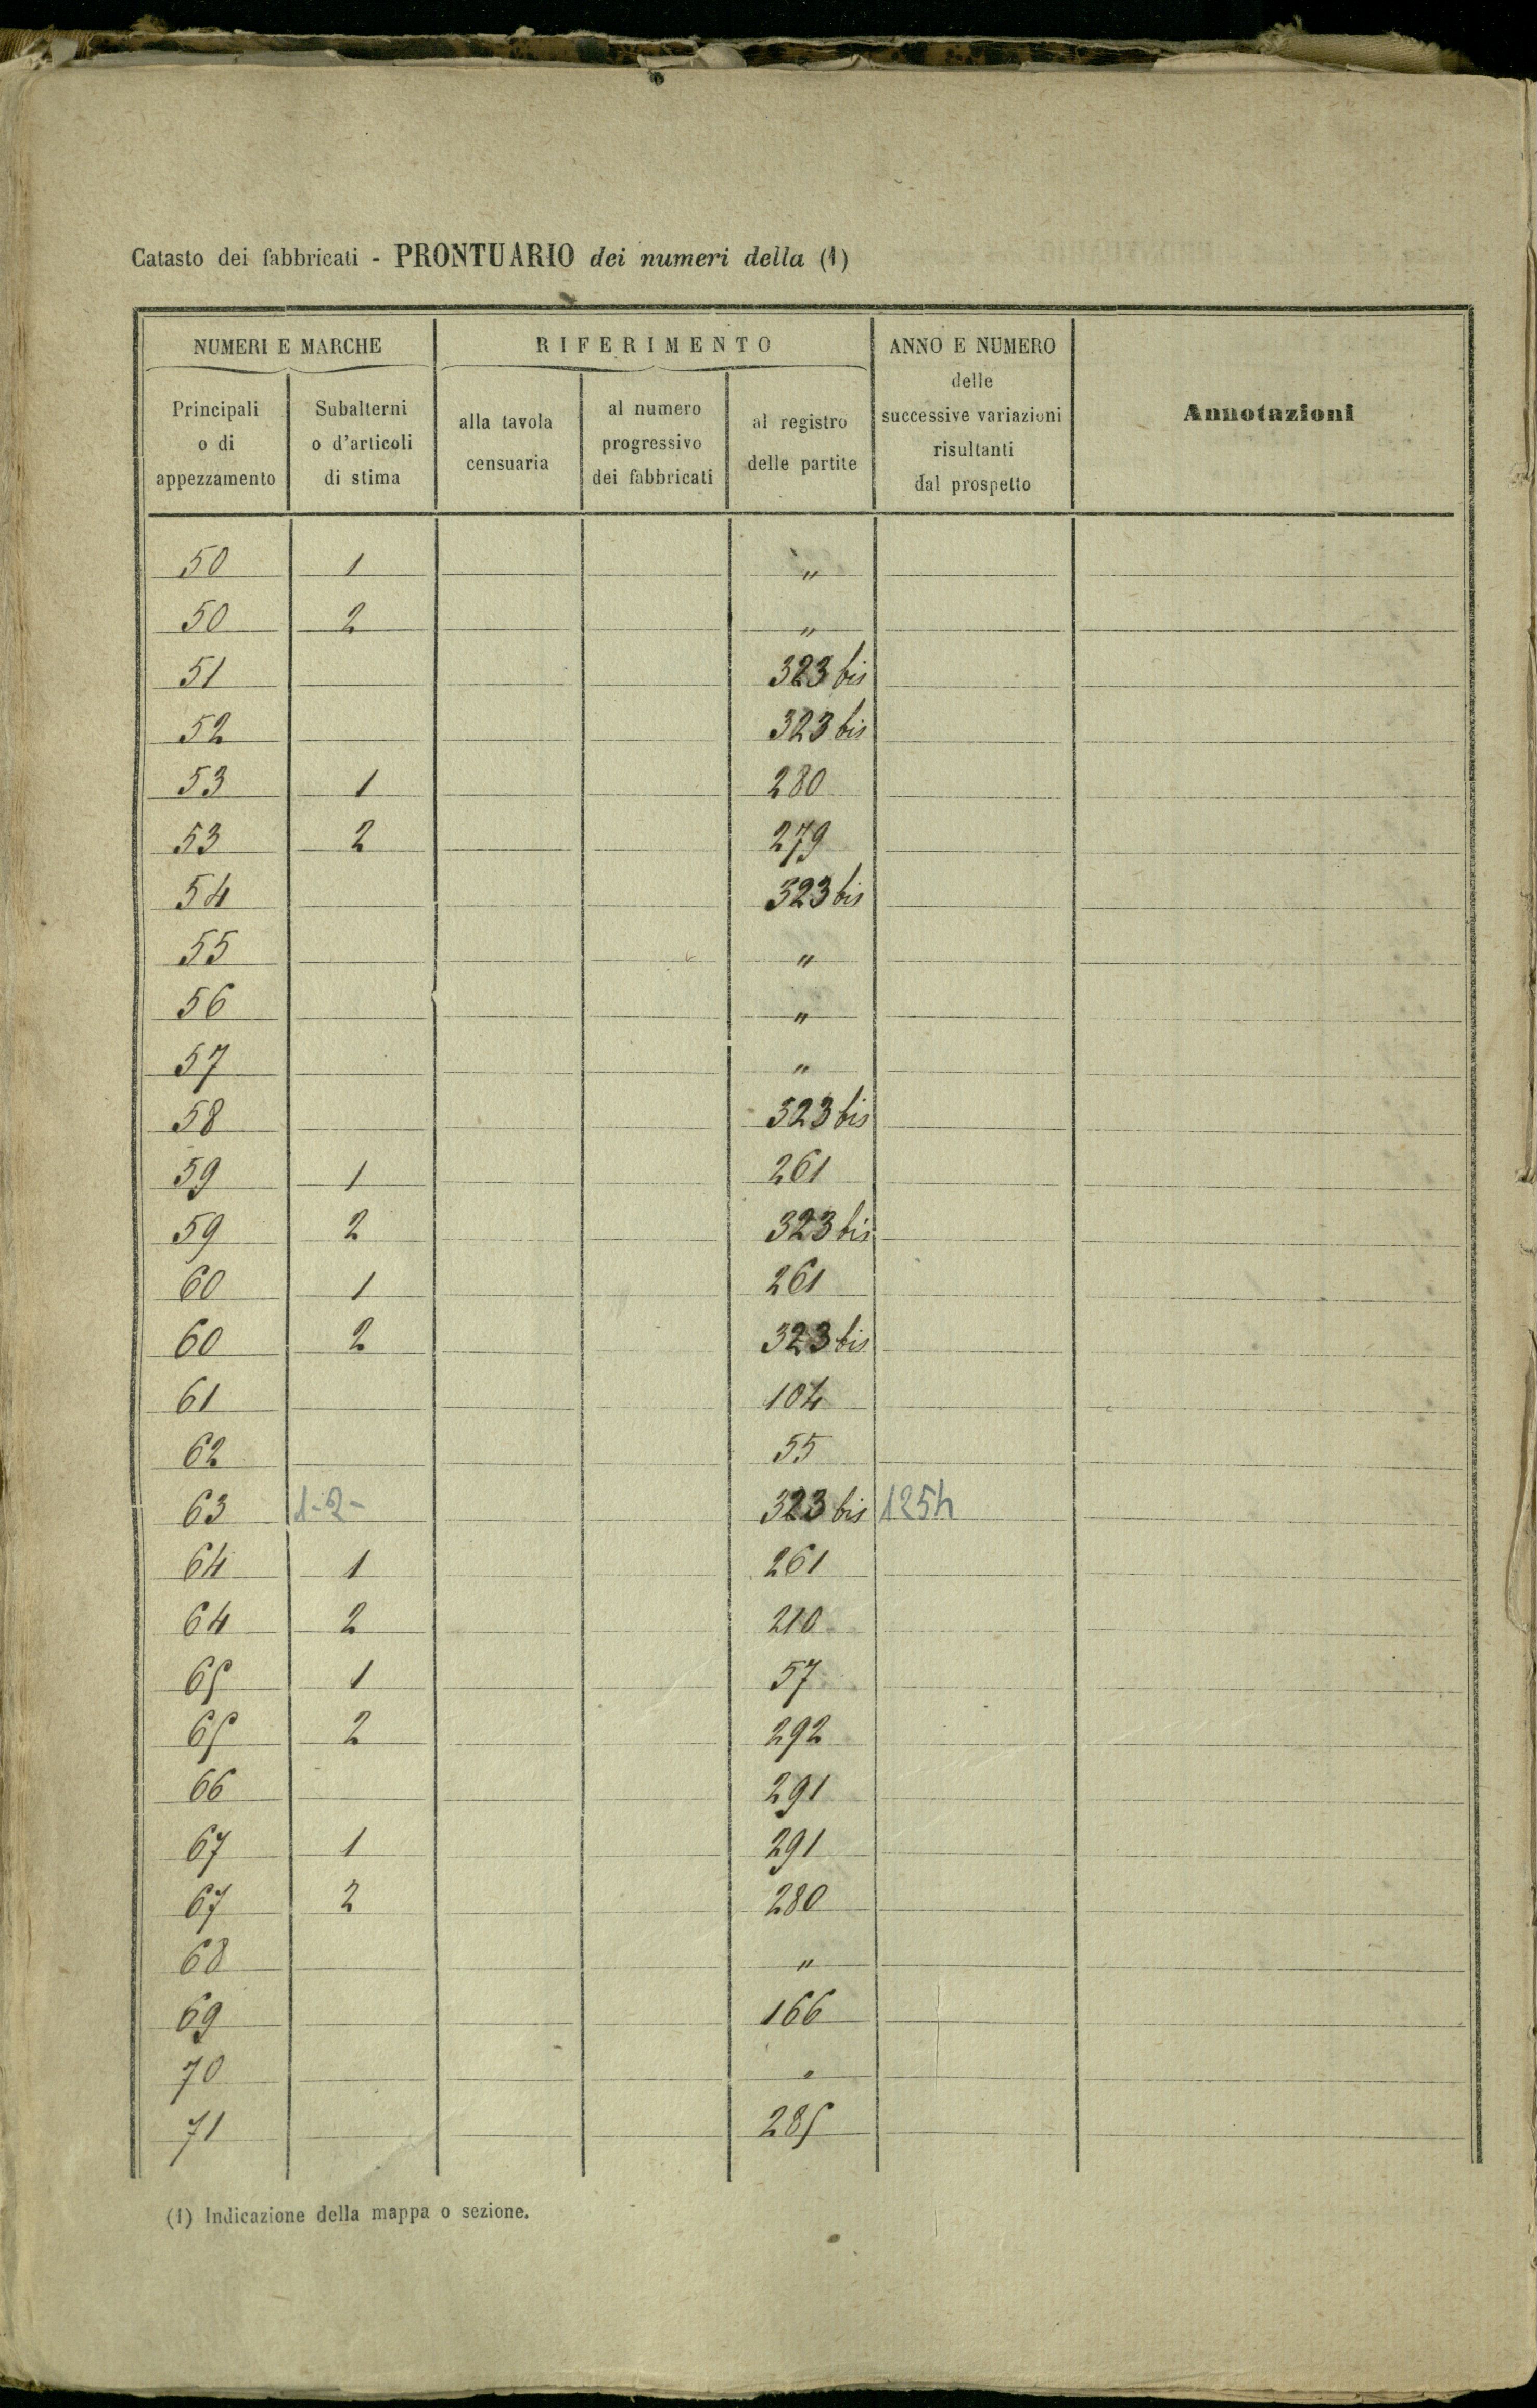 Catasto dei fabbricati - PRONTUARIO dei numeri della (1)
NUMERI E MARCHE
RIFERIMENTO
ANNO E NUMERO
delle
successive variazioni
risultanti
dal prospetto
Annotazioni
Principali
o di
appezzamento
Subalterni
o d'articoli
di stima
alla tavola
censuaria
al numero
progressivo
dei fabbricati
al registro
delle partite
50 1 "
50 2 "
51 323 bis
52 323 bis
53 1 280
53 2 279
54 323 bis
55 "
56 "
57 "
58 323 bis
59 1 261
59 2 323 bis
60 1 261
60 2 323 bis
61 104
62 55
63 1-2- 323 bis 125h
64 1 261
64 2 210
65 1 57
65 2 292
66 291
67 1 291
67 2 280
68 "
69 166
70 "
71 285
(1) Indicazione della mappa o sezione.